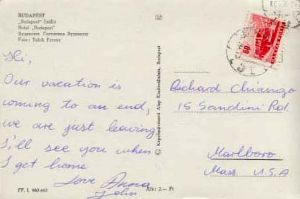 BUDAPEST
"Budapest" Szálló
Hotel "Budapest"
Будапешт Гостиница Будапешт
Foto: Balák Ferenc
Hi,
Our vacation is
coming to an end,
we are just leaving
I'll see you when
I get home
Love Anna
John
FF. I. 960-662
Ára: 2.- Ft
Képzőművészeti Alap Kiadóvállalata, Budapest
Richard Chiango
15 Sandini Rd.
Marlboro
Mass. U.S.A